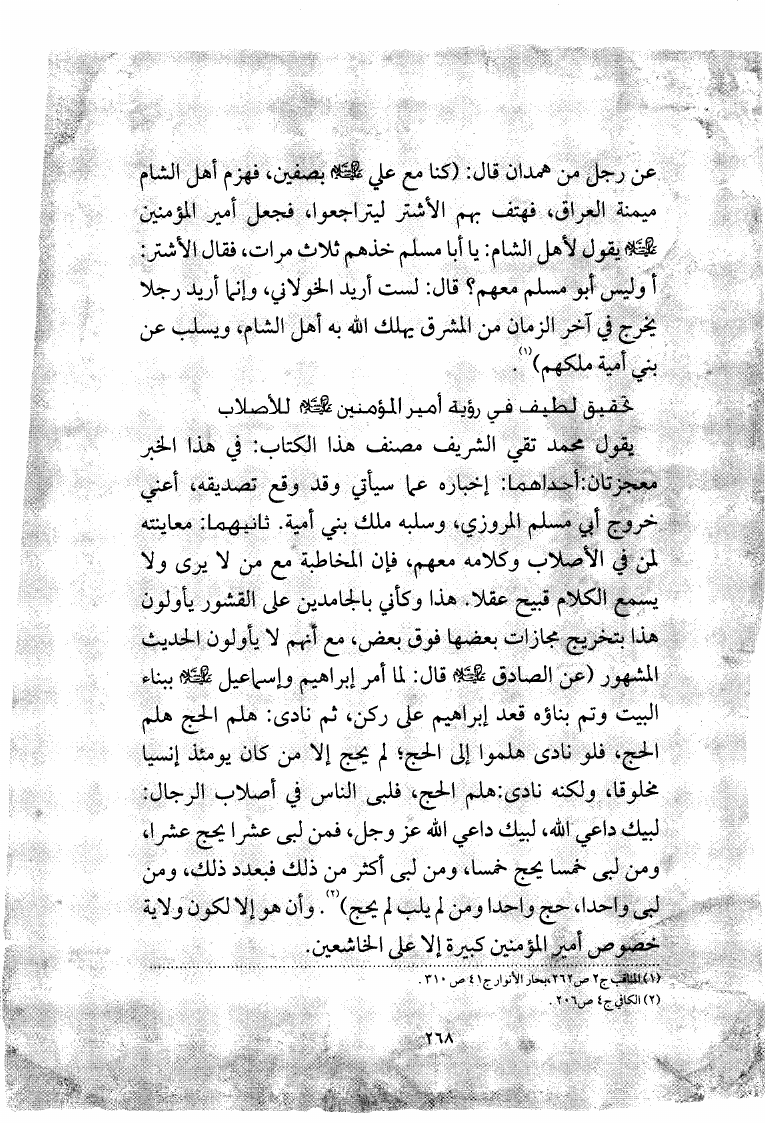 عن رجل من همدان قال: (كنا مع علي عليه السلام بصفين، فهزم أهل الشام
ميمنة العراق، فهتف بهم الأشتر ليتراجعوا، فجعل أمير المؤمنين
عليه السلام يقول لأهل الشام: يا أبا مسلم خذهم ثلاث مرات، فقال الأشتر:
أ وليس أبو مسلم معهم؟ قال: لست أريد الخولاني، وإنما أريد رجلا
يخرج في آخر الزمان من المشرق يهلك الله به أهل الشام، ويسلب عن
بني أمية ملكهم)(١).
تحقيق لطيف في رؤية أمير المؤمنين عليه السلام للأصلاب
يقول محمد تقي الشريف مصنف هذا الكتاب: في هذا الخبر
معجزتان:أحداهما: إخباره عما سيأتي وقد وقع تصديقه، أعني
خروج أبي مسلم المروزي، وسلبه ملك بني أمية. ثانيهما: معاينته
لمن في الأصلاب وكلامه معهم، فإن المخاطبة مع من لا يرى ولا
يسمع الكلام قبيح عقلا. هذا وكأني بالجامدين على القشور يأولون
هذا بتخريج مجازات بعضها فوق بعض، مع أنهم لا يأولون الحديث
المشهور (عن الصادق عليه السلام قال: لما أمر إبراهيم وإسماعيل عليه السلام ببناء
البيت وتم بناؤه قعد إبراهيم على ركن، ثم نادى: هلم الحج هلم
الحج، فلو نادى هلموا إلى الحج؛ لم يحج إلا من كان يومئذ إنسيا
مخلوقا، ولكنه نادى:هلم الحج، فلبى الناس في أصلاب الرجال:
لبيك داعي الله، لبيك داعي الله عز وجل، فمن لبى عشرا يحج عشرا،
ومن لبى خمسا يحج خمسا، ومن لبى أكثر من ذلك فبعدد ذلك، ومن
لبى واحدا، حج واحدا ومن لم يلب لم يحج)(٢). وأن هو إلا لكون ولاية
خصوص أمير المؤمنين كبيرة إلا على الخاشعين.
(١) المناقب ج٢ ص٢٦٢،بحار الأنوار ج٤١ ص ٣١٠.
(٢) الكافي ج٤ ص٢٠٦.
٢٦٨